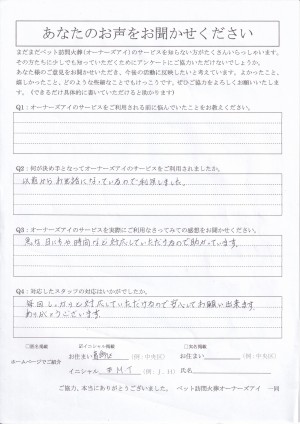 あなたのお声をお聞かせください
まだまだペット訪問火葬(オーナーズアイ)のサービスを知らない方がたくさんいらっしゃいます。
その方たちに少しでも知っていただくためにアンケートにご協力いただけないでしょうか。
あなた様のご意見をお聞かせいただき、今後の活動に反映したいと考えています。よかったこと、
嬉しかったこと、どのような些細なことでもけっこうです。ぜひご協力をよろしくお願いいたしま
す。(できるだけ具体的に書いていただけると助かります)
Q1：オーナーズアイのサービスをご利用される前に悩んでいたことをお教えください。
Q2：何が決め手となってオーナーズアイのサービスをご利用されましたか。
以前からお世話になっているので利用しました。
Q3：オーナーズアイのサービスを実際にご利用なさってみての感想をお聞かせください
急な日にちや時間など対応していただけるので助かっています。
Q4：対応したスタッフの対応はいかがでしたか。
毎回しっかりと対応していただけるので安心してお願い出来ます。
ありがとうございます。
ホームページでご紹介
□匿名掲載 ☑イニシャル掲載 □実名掲載
お住まい (例：中央区) お住まい (例：中央区)
イニシャル M.T (例：J．H) 氏名
ご協力、本当にありがとうございました。 ペット訪問火葬オーナーズアイ 一同